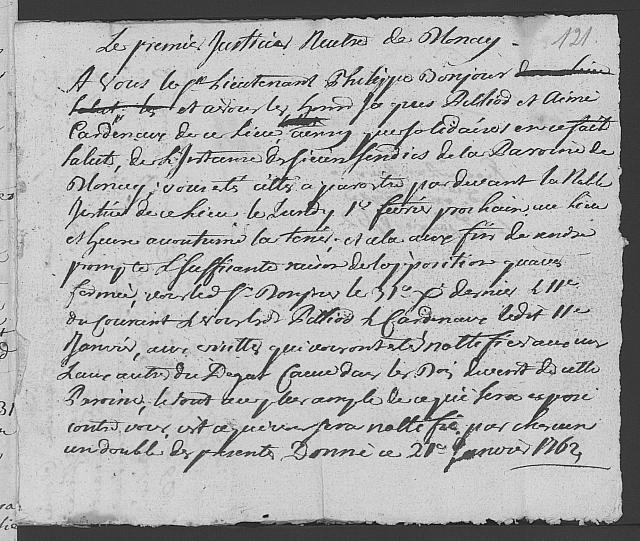 Le premier Justicier Neutre de Blonay . 121
A Vous le Sr. Lieutenant Philippe Bonjour
et a vous les honn Jaques Pilliod et Aimé
Cardenaux de ce lieu, que solidaires en ce fait
Salut, de L'Instance des Sindics de la Baronie de
Blonay, vous etes cittés a paroitre par devant la Noble
Justice de ce lieu le Lundy 1er février prochain, au lieu
et heure acoutumé la tenir, et cela aux fin de rendre
prompte & suffisante raison de L'opposition qu'avés
formée, vous led. Sr. Bonjour le 31e Xe dernier & 11e
du Courant & vous led. Pilliod & Cardenaux ledit 11e
Janvier, aux qui vous ont eté nottifiées aux uns
& aux autres du Degat Causé dans les Bois de cette
Baronie, le tout au plus ample de ce que sera exposé
contre vous, est ce qui vous sera nottifié par chacun
un double des presents Donné ce 21e Janvier 1762